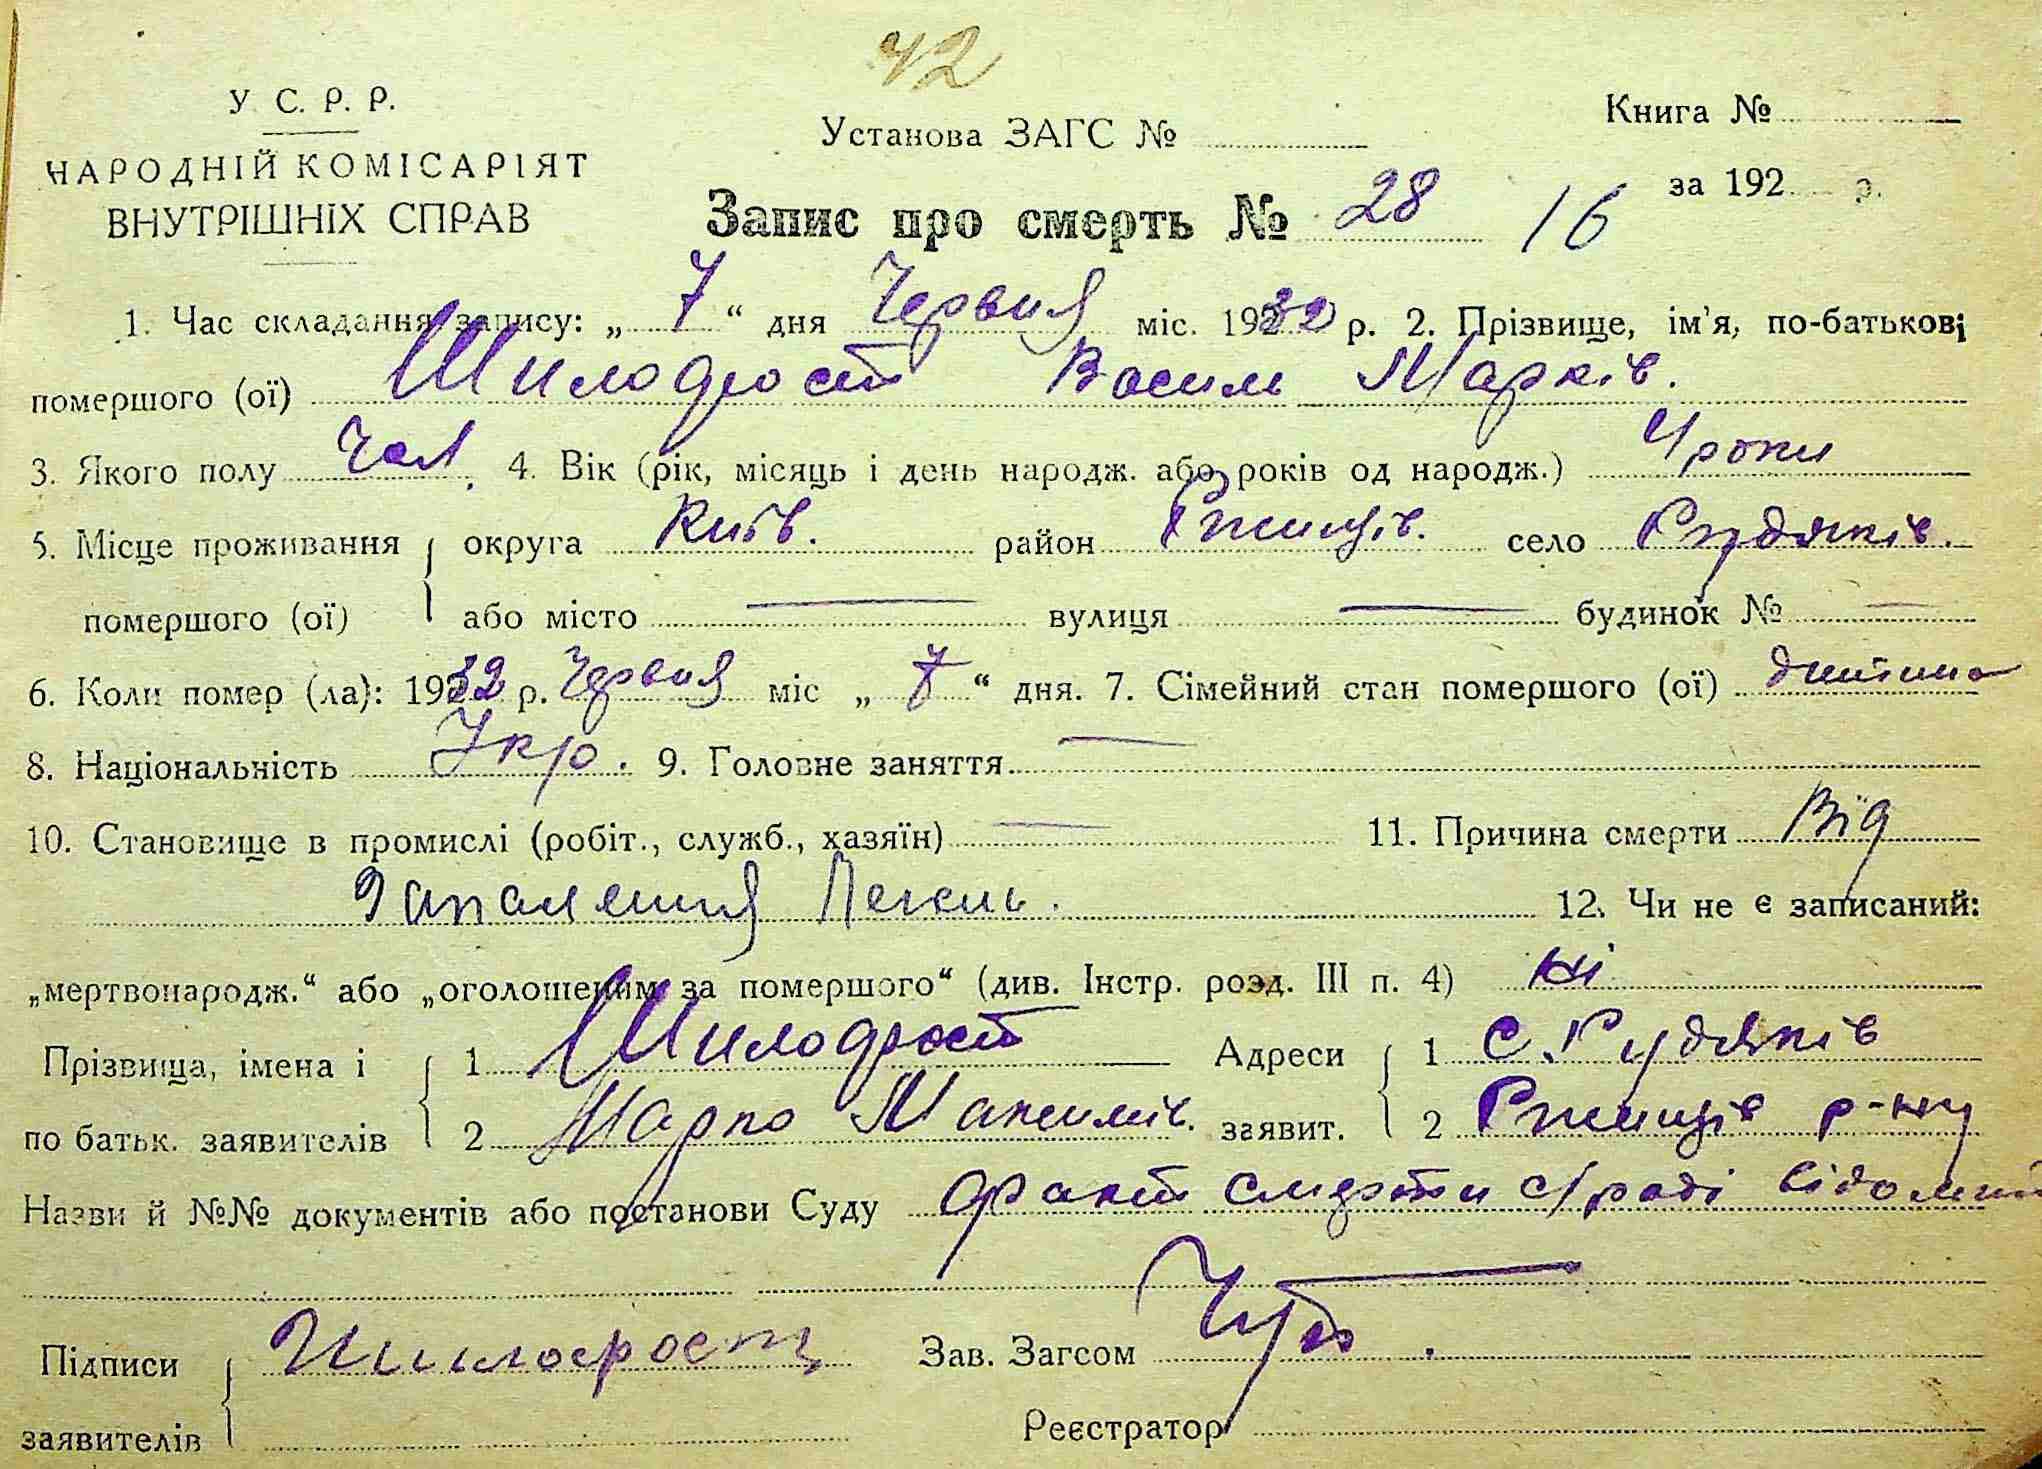 42
У. С. Р. Р.
НАРОДНІЙ КОМІСАРІЯТ
ВНУТРІШНІХ СПРАВ
Установа ЗАГС №
Книга №
за 192 р.
Запис про смерть № 28 16
1. Час складання запису: „ 7 “ дня Червня міс. 1932 р. 2. Прізвище, ім'я, по-батькові
помершого (ої) Шилодрост Васил Марків.
3. Якого полу Чол. 4. Вік (рік, місяць і день народж. або років од народж.) 4 роки
5. Місце проживання округа Київ. район Ржищів. село Рудяків.
помершого (ої) або місто — вулиця — будинок № —
6. Коли помер (ла): 1932 р. Червня міс „ 7 “ дня. 7. Сімейний стан помершого (ої) дитина
8. Національність Укр. 9. Головне заняття —
10. Становище в промислі (робіт., служб., хазяїн) — 11. Причина смерти Від
Запалення Легень. 12. Чи не є записаний:
„мертвонародж.“ або „оголошеним за помершого“ (див. Інстр. розд. III п. 4) ні
Прізвища, імена і 1 Шилодрост Адреси 1 с. Рудяків
по батьк. заявителів 2 Марко Макимів. заявит. 2 Ржищів р-ну
Назви й №№ документів або постанови Суду факт смерти с/раді відомий
Підписи Шилодрост Зав. Загсом
заявителів Реєстратор